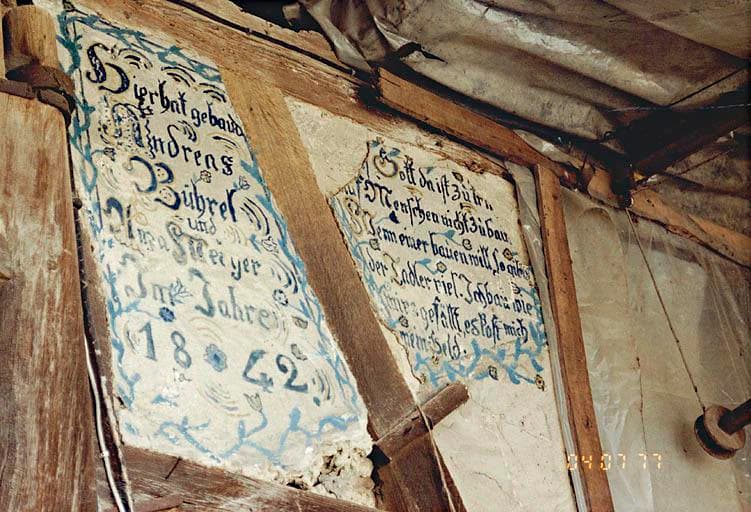 Hier hat gebau
Andreas
Bührel
und
Anna Meyer
Im Jahre
1842
Gott da ist zu tru
Menschen nicht zu bau.
Wenn einer bauen will, so
der Tadler viel. Ich bau wie
mirs gefällt, es kost mich
mein Geld.
04 07 77